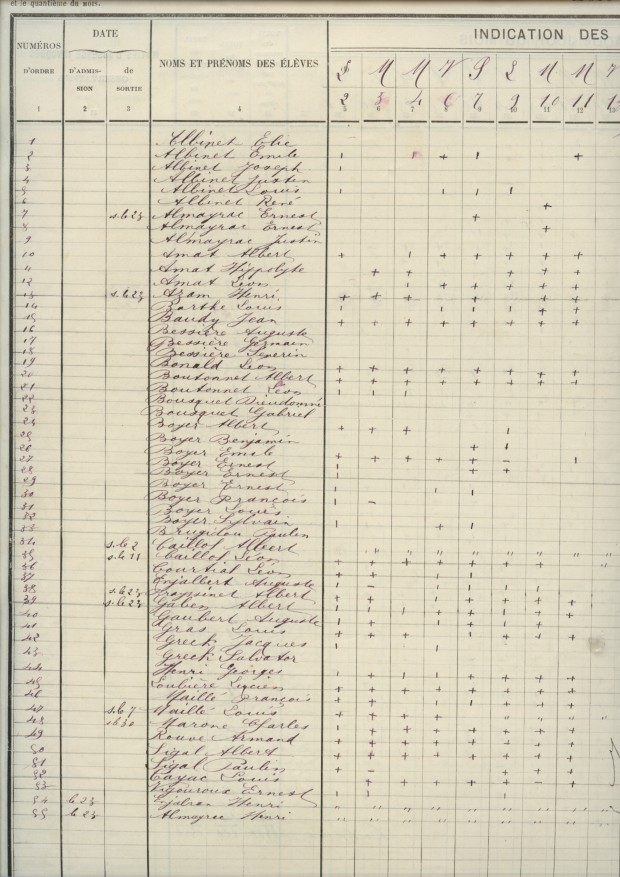 et le quantième du mois.
NUMÉROS D'ORDRE DATE NOMS ET PRÉNOMS DES ÉLÈVES INDICATION DES
D'ADMISSION de SORTIE
L M M V S L M M V
2 3 4 6 7 9 10 11 13
1 2 3 4 5 6 7 8 9 10 11 12 13
1 Albinet Elie
2 Albinet Emile
3 Albinet Joseph
4 Albinet Justin
5 Albinet Louis
6 Albinet René
7 s. le 23 Almayrac Ernest
8 Almayrac Ernest
9 Almayrac Justin
10 Amat Albert
11 Amat Hippolyte
12 Amat Léon
13 s. le 23 Azam Henri
14 Barthe Louis
15 Baudy Jean
16 Bessière Auguste
17 Bessière Germain
18 Bessière Séverin
19 Bonald Léon
20 Boutonnet Albert
21 Boutonnet Léon
22 Bousquet Dieudonné
23 Bousquet Gabriel
24 Boyer Albert
25 Boyer Benjamin
26 Boyer Emile
27 Boyer Ernest
28 Boyer Ernest
29 Boyer Ernest
30 Boyer François
31 Boyer Louis
32 Boyer Sylvain
33 Brugidou Paulin
34 s. le 2 Caillol Albert
35 s. le 11 Caillol Léon
36 Courtial Léon
37 Enjalbert Auguste
38 s. le 23 Albert
39 s. le 23 Gaben Albert
40 Gaubert Auguste
41 Gras Louis
42 Greck Jacques
43 Greck Salvator
44 Henri Georges
45 Loubière Lucien
46 Maillé François
47 s. le 7 Maillé Louis
48 Marone Charles
49 Rouve Armand
50 Sigal Albert
51 Sigal Paulin
52 Cayac Louis
53 Vigouroux Ernest
54 le 23 Henri
55 le 23 Almayrac Henri